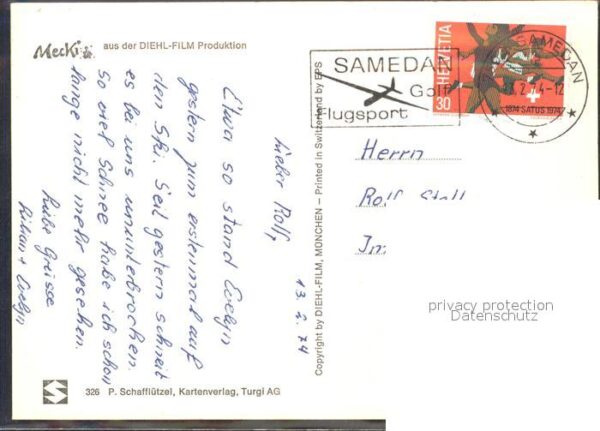 Mecki
aus der DIEHL-FILM Produktion
13. 2. 74
Lieber Rolf,
Etwa so stand Evelyn
gestern zum erstenmal auf
den Ski. Seit gestern schneit
es bei uns ununterbrochen.
So viel Schnee habe ich schon
lange nicht mehr gesehen.
Liebe Grüsse
Lilian + Evelyn
326 P. Schafflützel, Kartenverlag, Turgi AG
Copyright by DIEHL-FILM, MÜNCHEN – Printed in Switzerland by EPS
SAMEDAN
Golf
Flugsport
HELVETIA
30
1874 SATUS 1974
SAMEDAN
2.74-12
Herrn
Rolf
privacy protection
Datenschutz